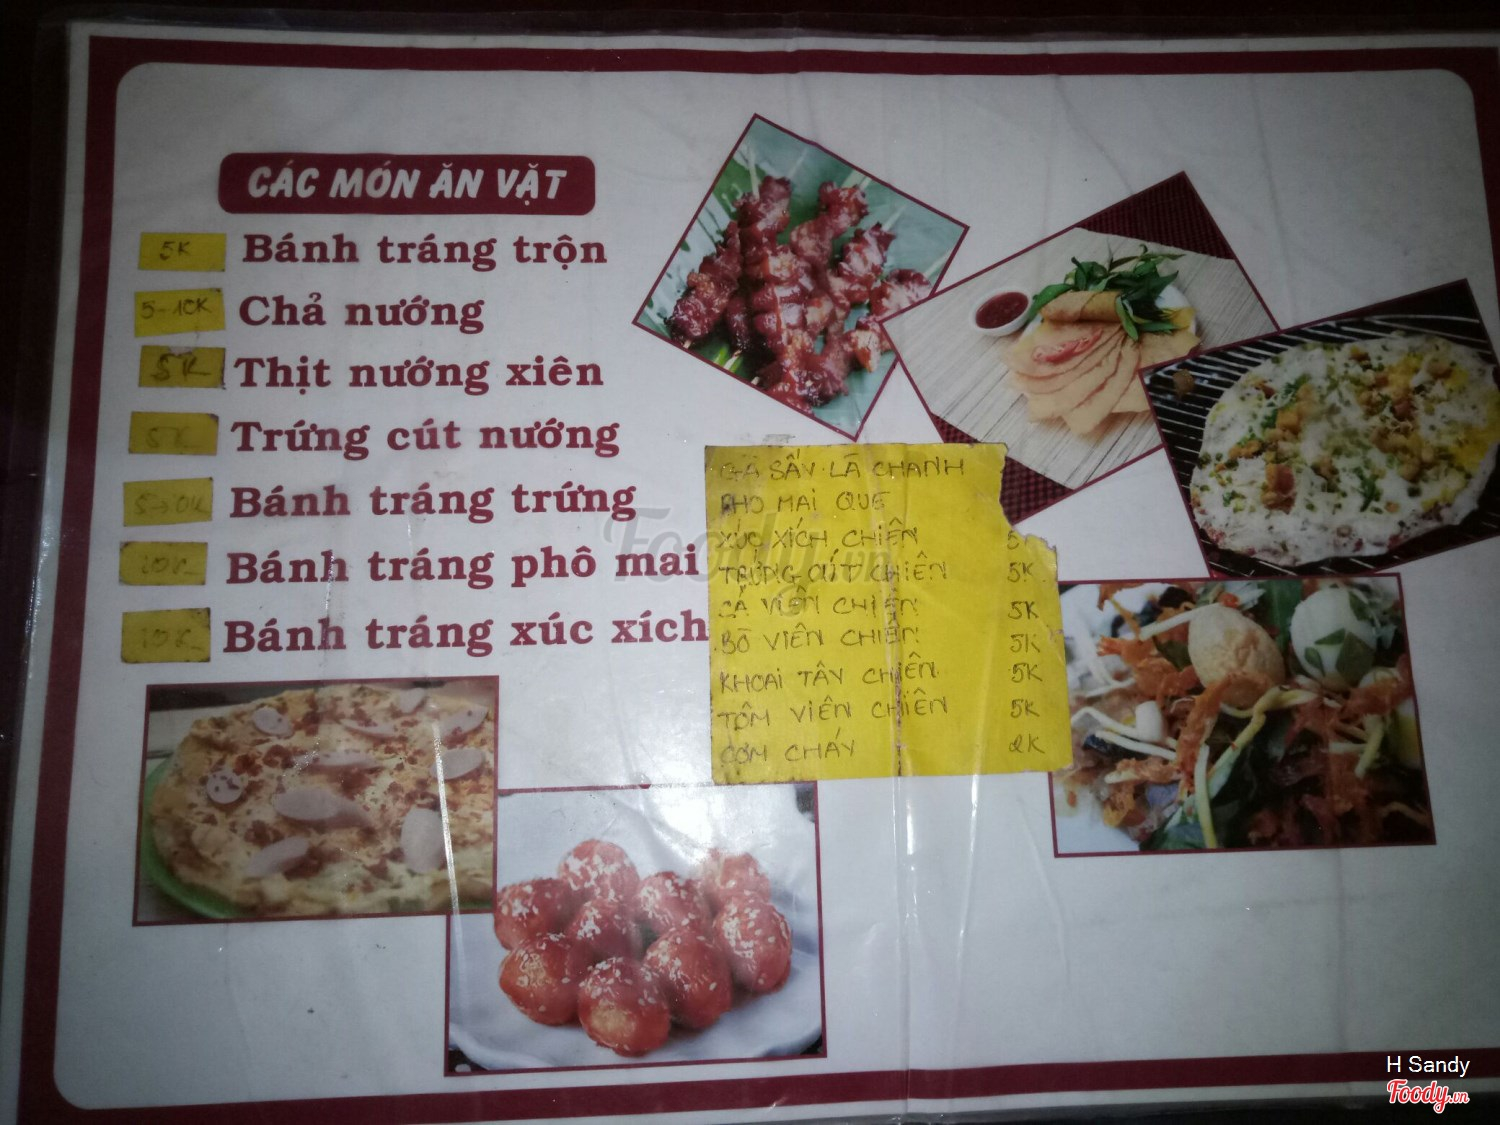 CÁC MÓN ĂN VẶT
5K Bánh tráng trộn
5-10K Chả nướng
5K Thịt nướng xiên
5K Trứng cút nướng
5-10K Bánh tráng trứng
10K Bánh tráng phô mai
10K Bánh tráng xúc xích
GÀ SẤY LÁ CHANH
PHO MAI QUE
XÚC XÍCH CHIÊN 5
TRỨNG CÚT CHIÊN 5K
CÁ VIÊN CHIÊN 5K
BÒ VIÊN CHIÊN 5K
KHOAI TÂY CHIÊN 5K
TÔM VIÊN CHIÊN 5K
CƠM CHÁY 2K
Foody.vn
H Sandy
Foody.vn